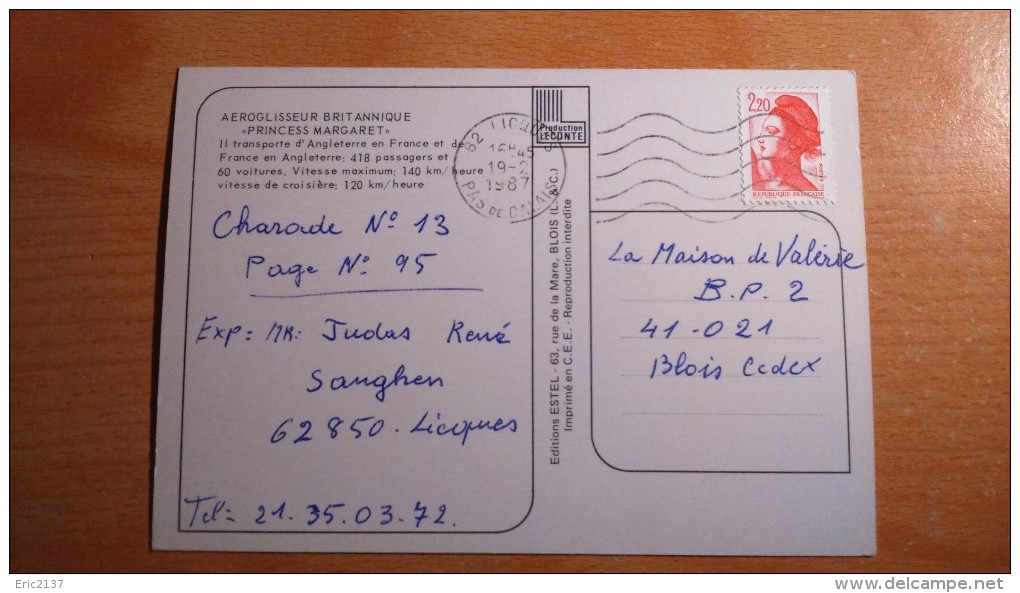 AEROGLISSEUR BRITANNIQUE
«PRINCESS MARGARET»
Il transporte d'Angleterre en France et de
France en Angleterre: 418 passagers et
60 voitures. Vitesse maximum: 140 km/heure
vitesse de croisière: 120 km/heure
Charade N° 13
Page N° 95
Exp = MR: Judas René
Sanghen
62850. Licques
Tel = 21.35.03.72.
Production
LECONTE
Editions ESTEL - 63, rue de la Mare, BLOIS (L.&C.)
Imprimé en C.E.E. - Reproduction interdite
62 LICQUES
16H45
19-2
1987
PAS DE CALAIS
2,20
REPUBLIQUE FRANÇAISE
La Maison de Valérie
B.P. 2
41-021
Blois Cedex
Eric2137
delcampe.net